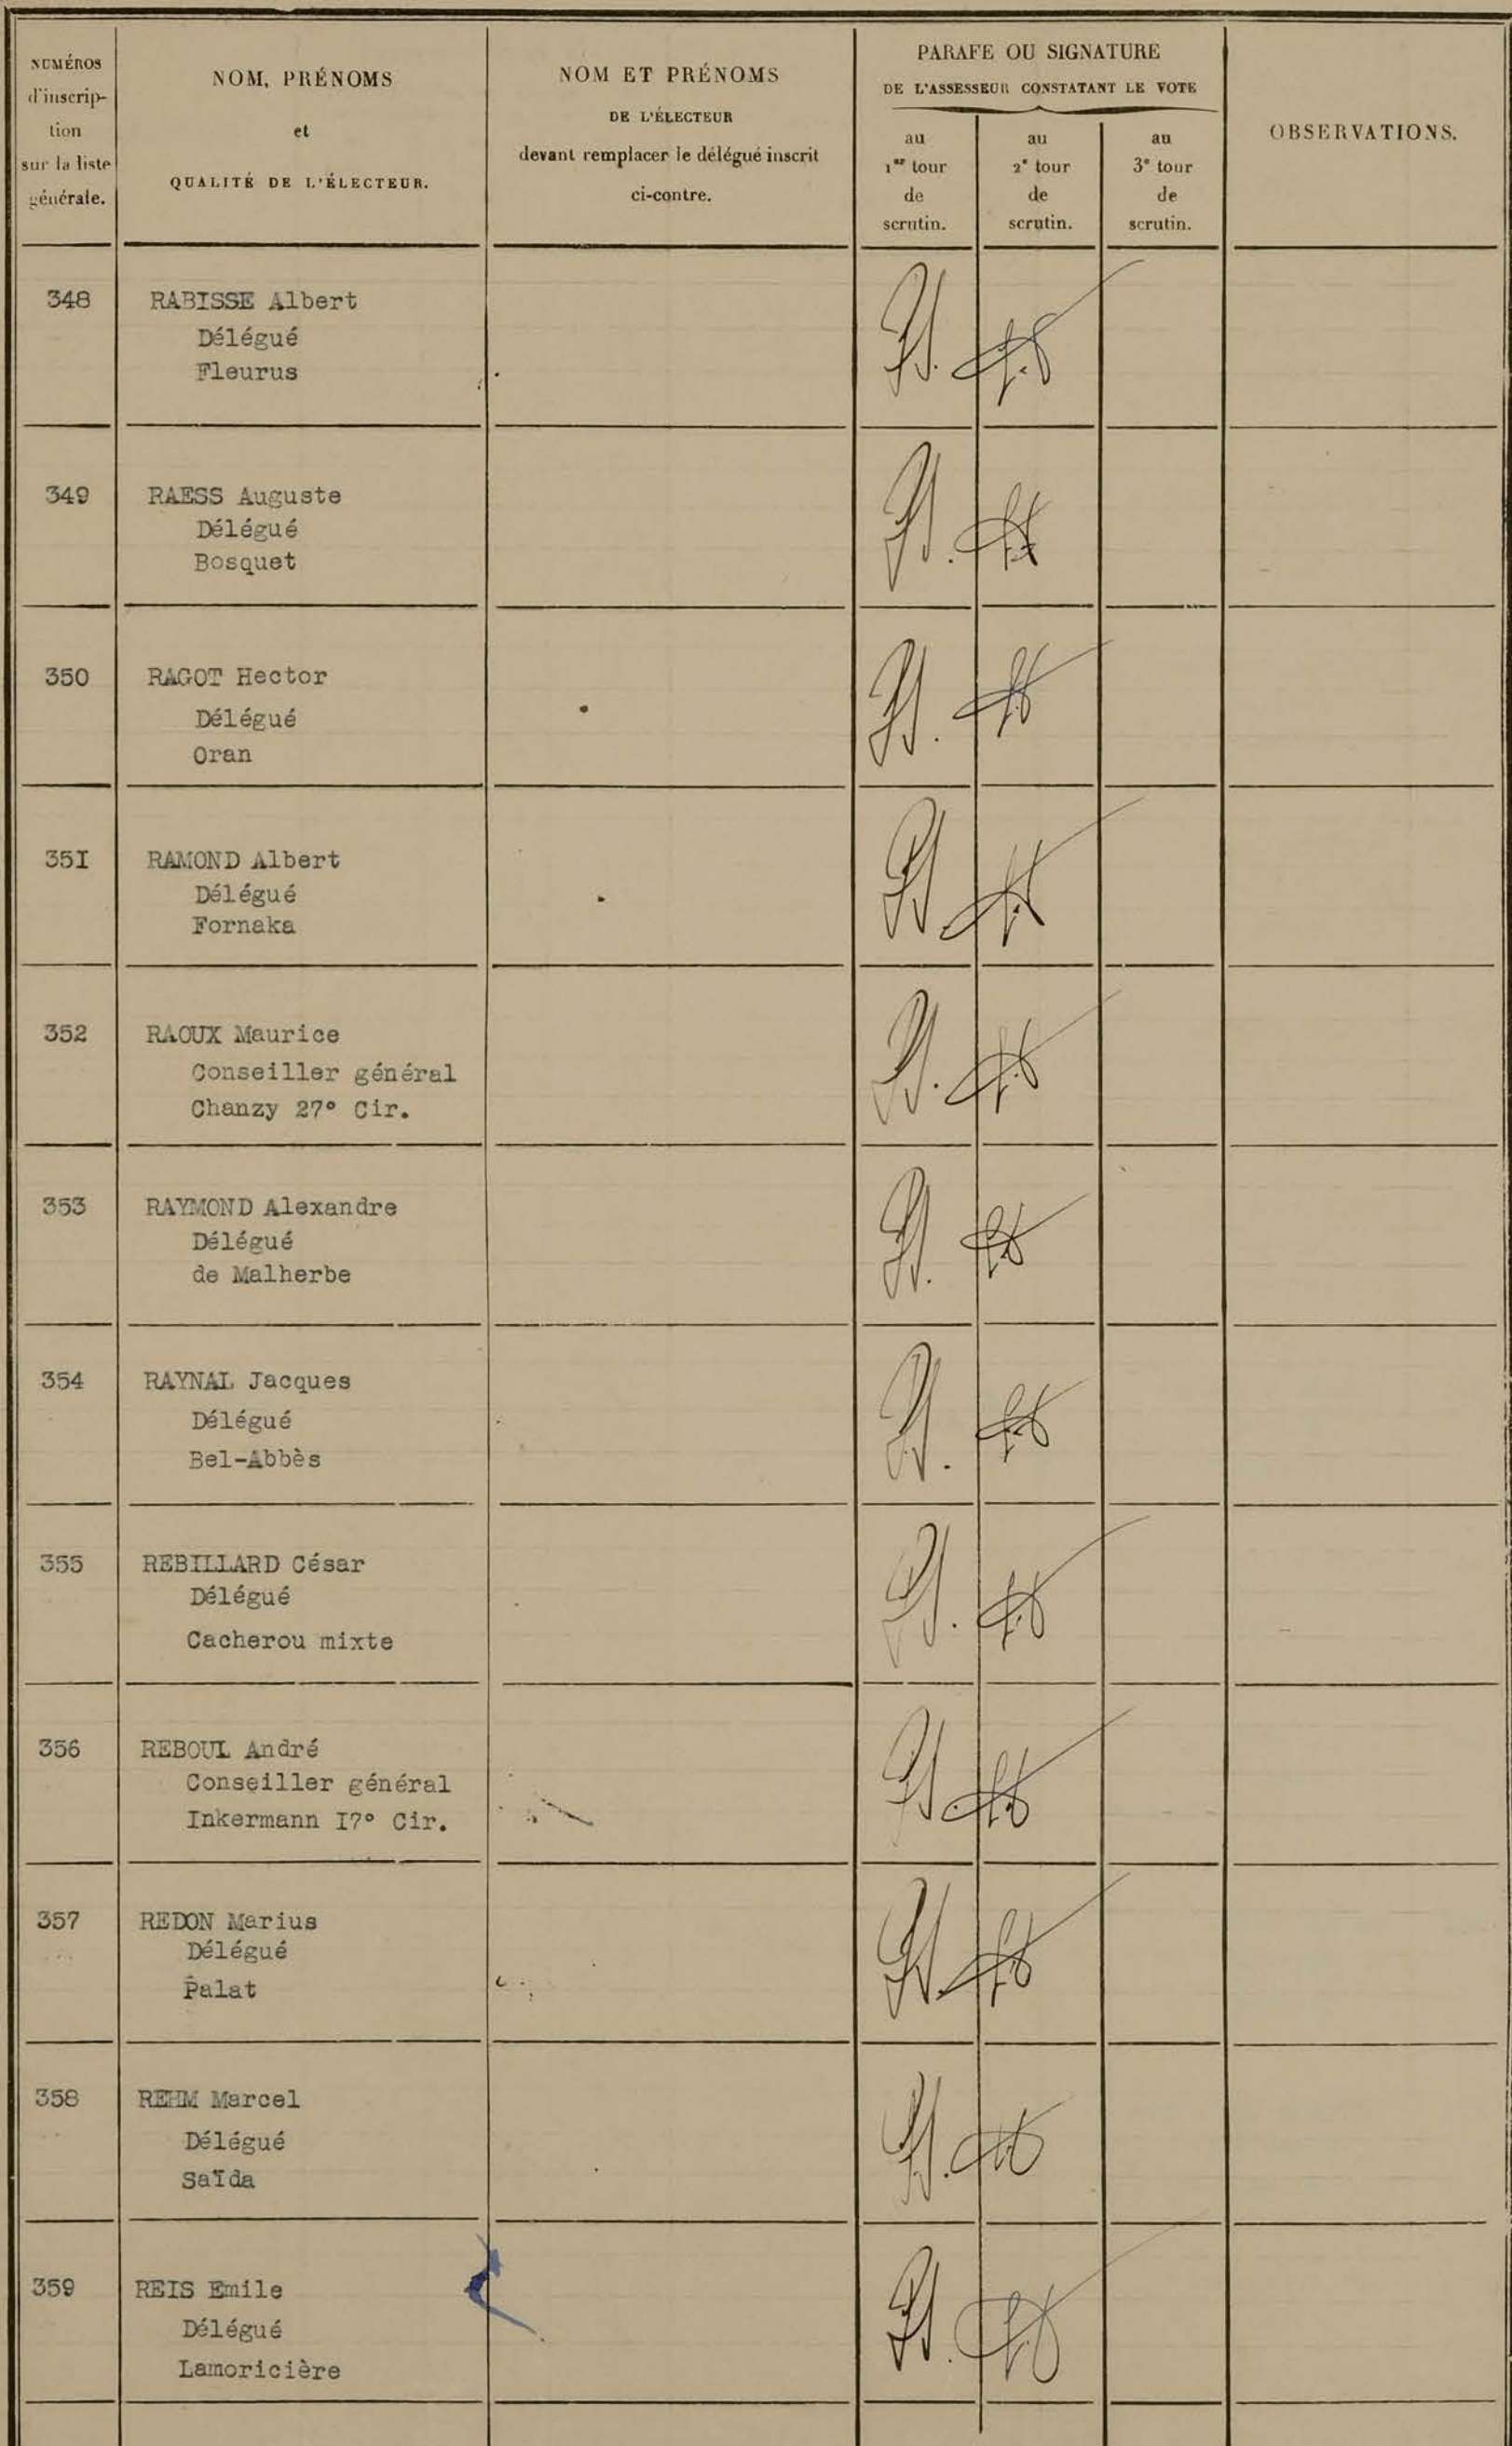 NUMÉROS
d'inscrip-
tion
sur la liste
générale.
NOM, PRÉNOMS
et
QUALITÉ DE L'ÉLECTEUR.
NOM ET PRÉNOMS
DE L'ÉLECTEUR
devant remplacer le délégué inscrit
ci-contre.
PARAFE OU SIGNATURE
DE L'ASSESSEUR CONSTATANT LE VOTE
au
1er tour
de
scrutin.
au
2e tour
de
scrutin.
au
3e tour
de
scrutin.
OBSERVATIONS.
348 RABISSE Albert
Délégué
Fleurus
349 RAESS Auguste
Délégué
Bosquet
350 RAGOT Hector
Délégué
Oran
35I RAMOND Albert
Délégué
Fornaka
352 RAOUX Maurice
Conseiller général
Chanzy 27° Cir.
353 RAYMOND Alexandre
Délégué
de Malherbe
354 RAYNAL Jacques
Délégué
Bel-Abbès
355 REBILLARD César
Délégué
Cacherou mixte
356 REBOUL André
Conseiller général
Inkermann I7° Cir.
357 REDON Marius
Délégué
Palat
358 REHM Marcel
Délégué
Saïda
359 REIS Emile
Délégué
Lamoricière